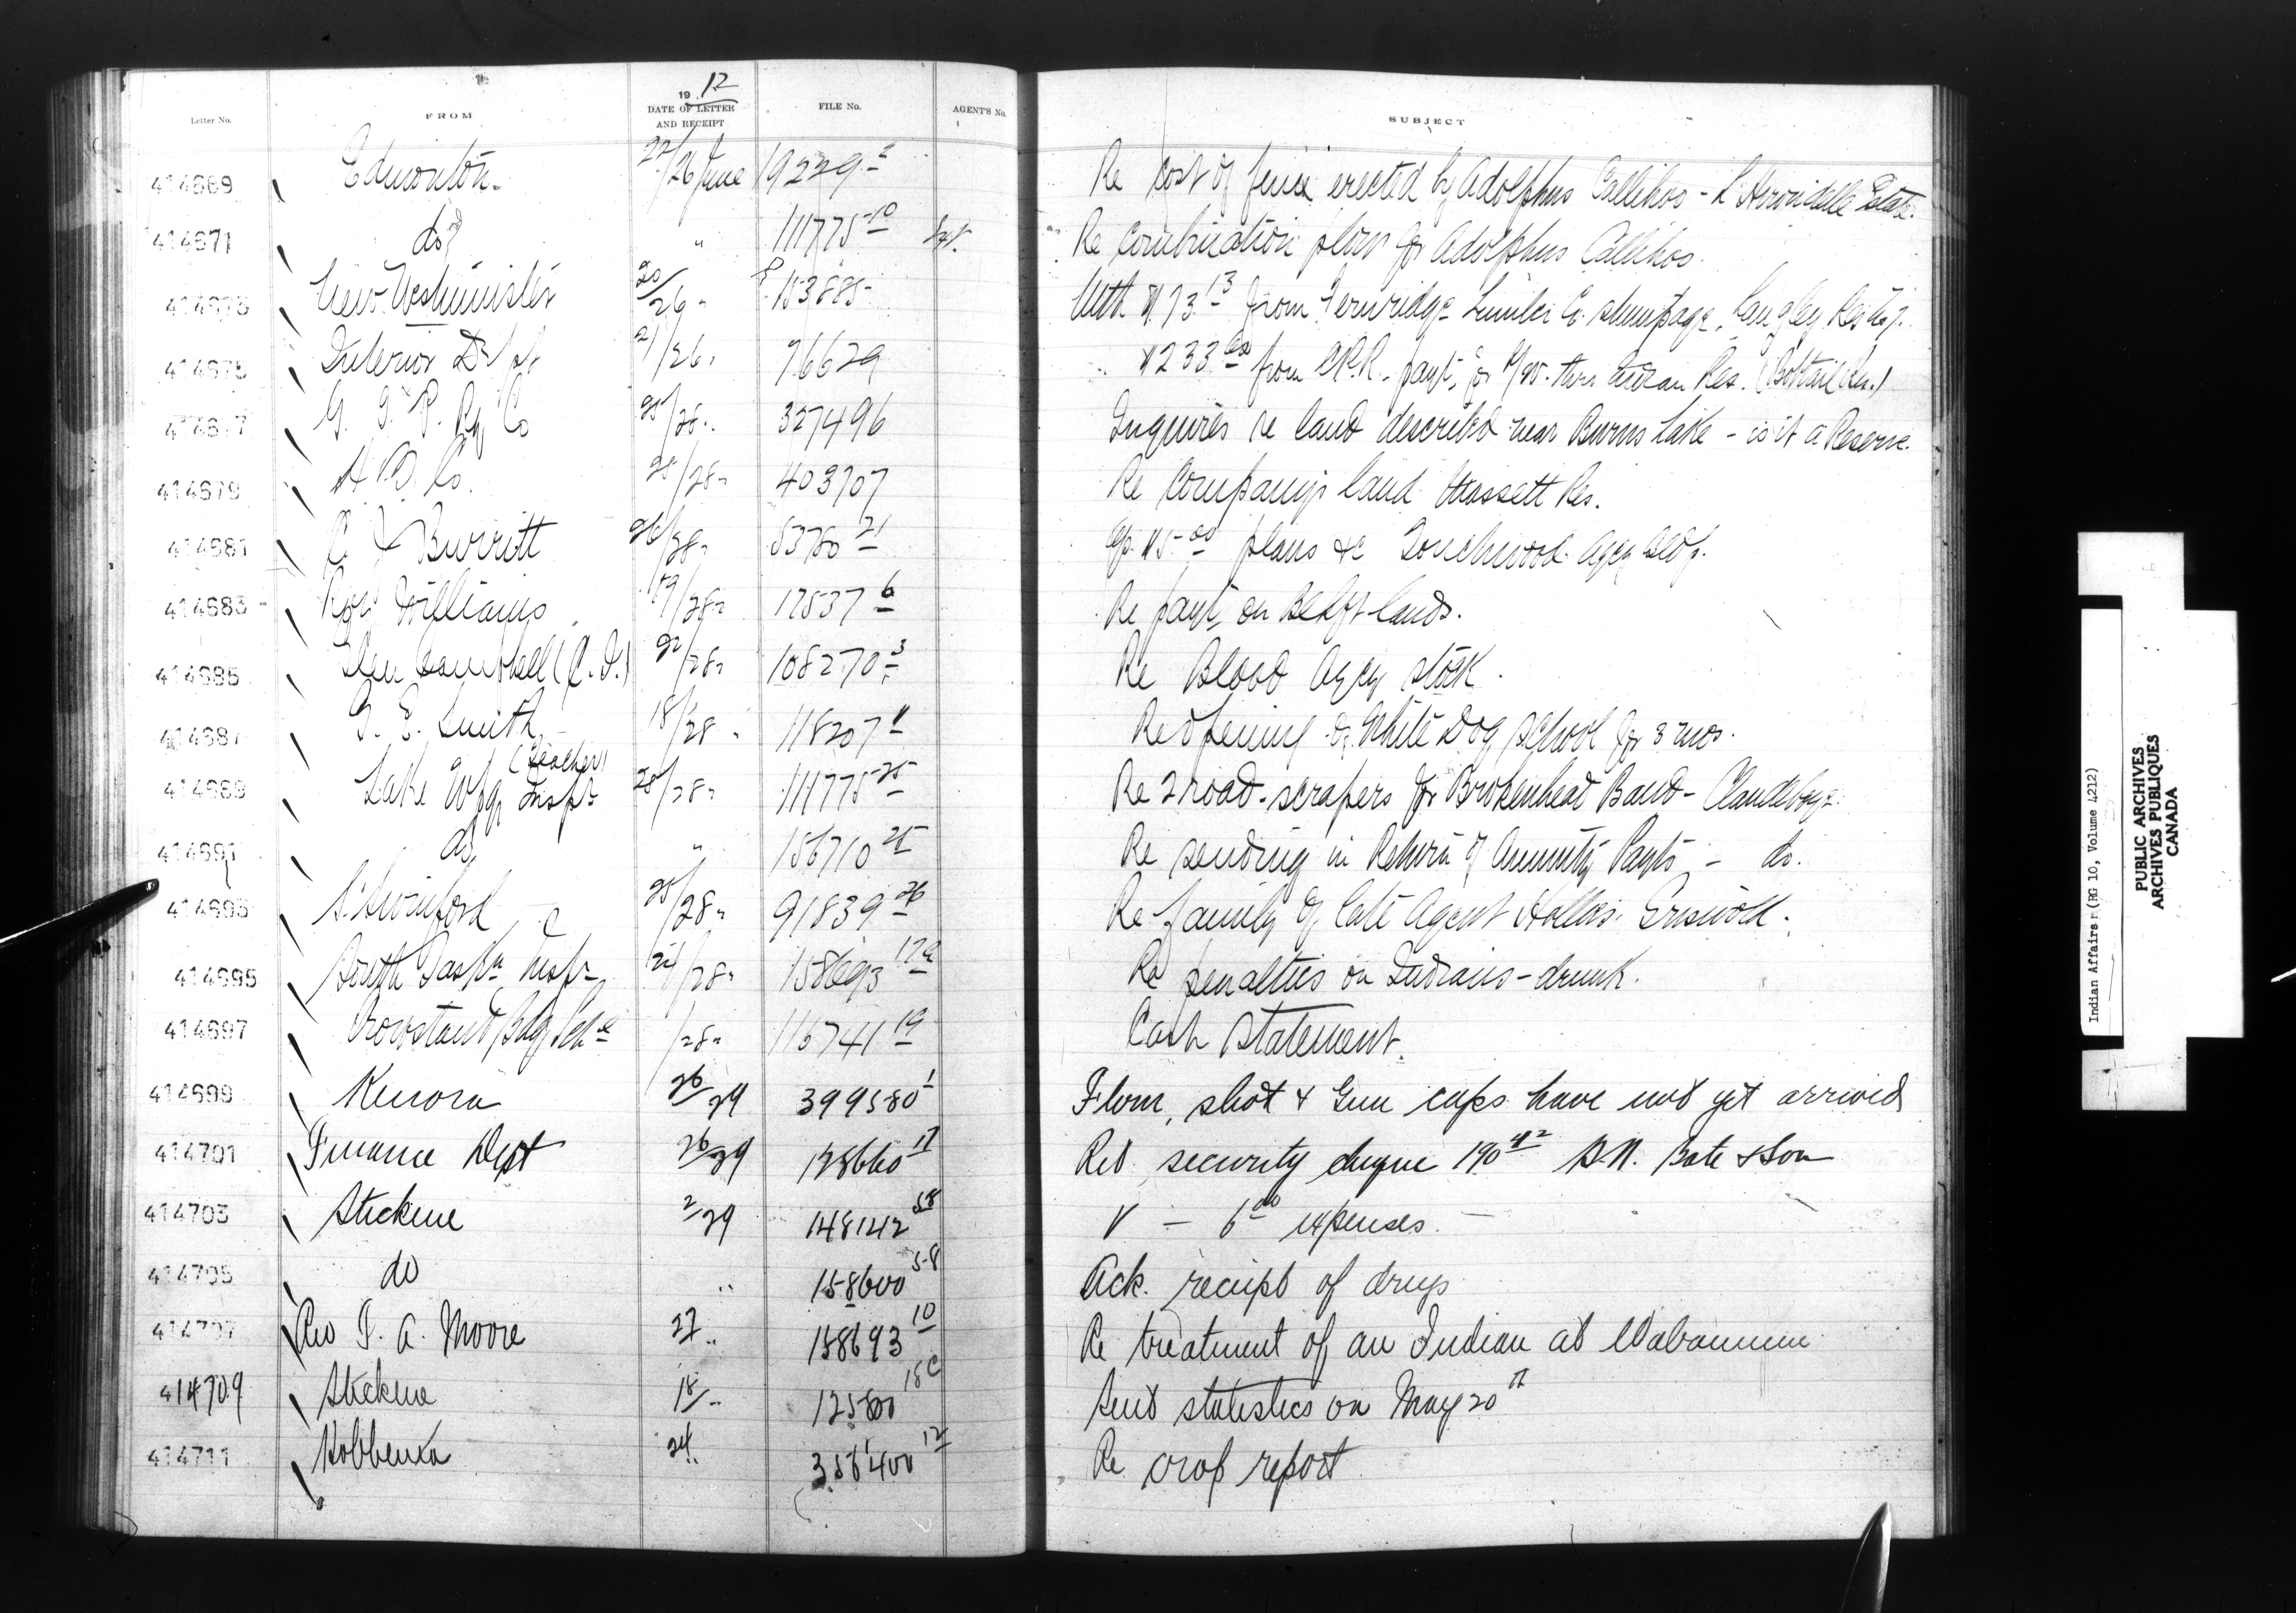 19 12
Letter No. FROM DATE OF LETTER AND RECEIPT FILE No. AGENT'S No. SUBJECT
414669 Edmonton 22/26 June 19229-2 Re cost of fence erected by Adolphus Callihoo - L'Hirondelle Estate.
414671 do " 111775-10 Re combination plow for Adolphus Callihoo.
414673 New Westminster 20/26 " 153885 With $173 13 from Fernridge Lumber Co. stumpage, Langley Res. No 7.
414675 Interior Dept 21/26 " 76629 " $233 from C.P.R. payt, for R/W. thro Indian Res. (Bobtail Res.)
414677 G. T. P. Ry Co 25/28 " 327496 Inquires re land described near Burns Lake - is it a Reserve.
414679 H B. Co. 28/28 " 403707 Re Company's land Massett Res.
414681 Burritt 26/28 " 53760 21 $5 00 plans &c Touchwood Agcy Bldg.
414683 Williams 19/28 " 17537 6 Re payt, on Blkft lands.
414685 Glen Campbell (C. I.) 22/28 " 108270 3 Re Blood Agcy stock.
414687 G. E. Smith (Teacher) 18/28 " 118207 Re opening of White Dog School for 3 mos.
414689 Lake Wpg Inspr 25/28 " 111775-25 Re 2 road-scrapers for Brokenhead Band - Clandeboye.
414691 do " 156710 25 Re sending in Return of Annuity Payts - do.
414693 S. Swinford 25/28 " 91839 26 Re family of late Agent Hollies Griswold.
414695 South Saskn Inspr 24/28 " 158693 17 Re penalties on Indians - drunk.
414697 Crowstand Bdg Schl /28 " 116741 19 Cash Statement.
414699 Kenora 26/29 399580 1 Flour, shot & Gun caps have not yet arrived
414701 Finance Dept 26/29 Retd security cheque 190 H.N. Bate & Son
414703 Stickine 2/29 148142 58 V - 6 00 expenses.
414705 do " 158600 58 Ack. receipt of drugs
414707 Rev T. A. Moore 27 " 158693 10 Re treatment of an Indian at Wabamun
414709 Stickine 18/ " 125800 18C Send statistics on May 20th
414711 Hobbema 24 " 356400 12 Re crop report
Indian Affairs: (RG 10, Volume 4212)
PUBLIC ARCHIVES
ARCHIVES PUBLIQUES
CANADA